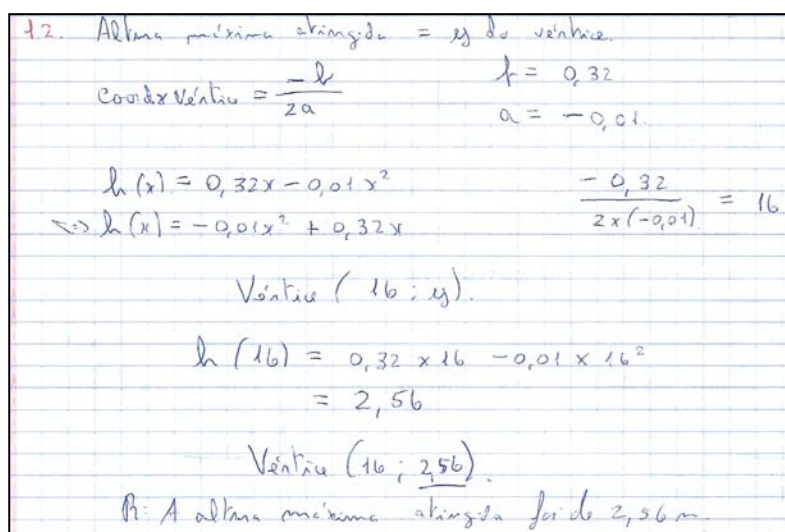 1.2. Altura máxima atingida = y do vértice.
Coordx vértice = -b/2a
b = 0,32
a = -0,01
h(x) = 0,32x - 0,01x²
<=> h(x) = -0,01x² + 0,32x
-0,32/2x(-0,01) = 16
Vértice (16 ; y).
h(16) = 0,32 x 16 - 0,01 x 16²
= 2,56
Vértice (16 ; 2,56).
R: A altura máxima atingida foi de 2,56 m.